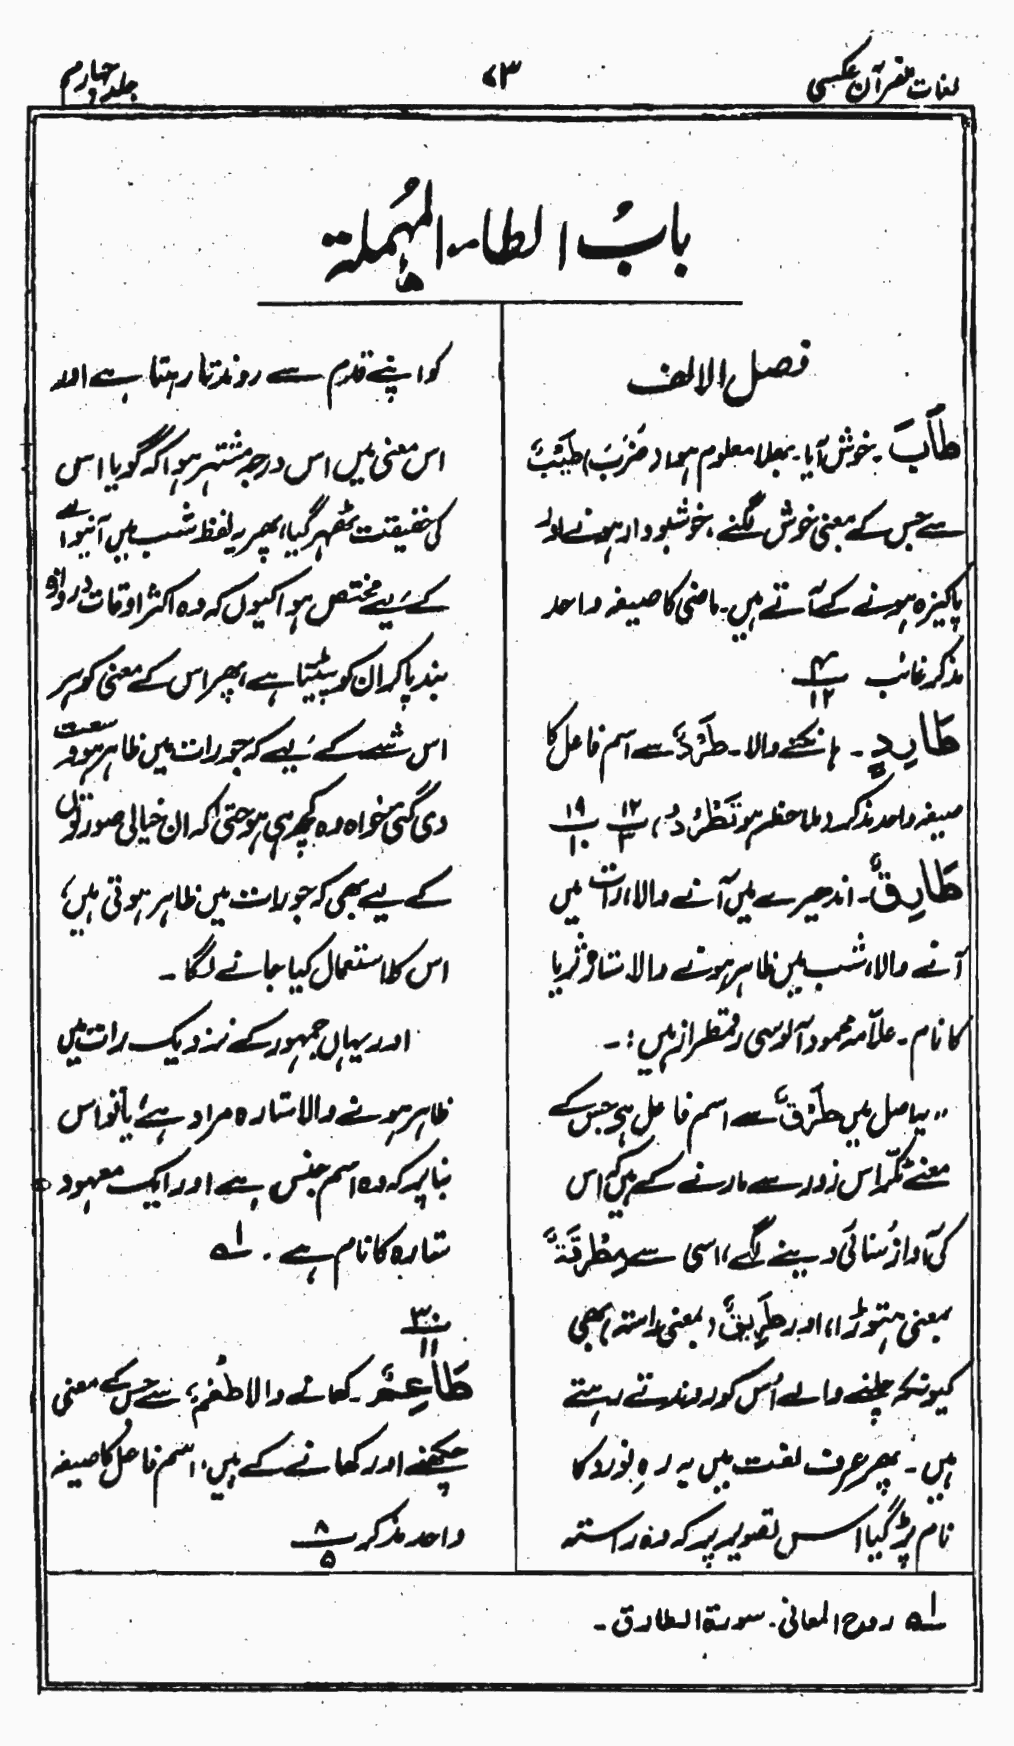 لغات القرآن عکسی
۷۳
جلد چہارم
بابُ الطاء المُہملۃ
فصل الالف
طَابَ۔ خوش آیا۔ بھلا معلوم ہوا (ضَرَبَ) طَیِّبٌ
سے جس کے معنی خوش لگنے، خوشبودار ہونے اور
پاکیزہ ہونے کے آتے ہیں۔ ماضی کا صیغہ واحد
مذکر غائب ۴/۱۲
طَارِدِ۔ ہانکنے والا۔ طَرْدٌ سے اسم فاعل کا
صیغہ واحد مذکر (ملاحظہ ہو تَطْرُدُ) ۱۲/۳ ۱۹/۱۰
طَارِقٌ۔ اندھیرے میں آنے والا، رات میں
آنے والا، شب میں ظاہر ہونے والا ستارہ ثریا
کا نام۔ علامہ محمود آلوسی رقمطراز ہیں :۔
"یہ اصل میں طَرْقٌ سے اسم فاعل ہی جس کے
معنے ٹکر اس زور سے مارنے کے ہیں کہ اس
کی آواز سُنائی دینے لگے، اسی سے مِطْرَقَۃٌ
بمعنی ہتوڑا، اور طَرِیقٌ (بمعنی راستہ) بھی
کیونکہ چلنے والے اُس کو روندتے رہتے
ہیں۔ پھر عرف لغت میں یہ رہِ نورد کا
نام پڑ گیا اس تصویر پر کہ وہ راستہ
کو اپنے قدم سے روندتا رہتا ہے اور
اس معنی میں اس درجہ مشتہر ہوا کہ گویا اس
کی حقیقت ٹھہر گیا، پھر یہ لفظ شب میں آنیوالے
کے لیے مختص ہوا کیوں کہ وہ اکثر اوقات دروازہ
بند پاکر ان کو پیٹتا ہے، پھر اس کے معنی کو ہر
اس شے کے لیے کہ جو رات میں ظاہر ہو وسعت
دی گئی خواہ وہ کچھ ہی ہو حتی کہ ان خیالی صورتوں
کے لیے بھی کہ جو رات میں ظاہر ہوتی ہیں،
اس کا استعمال کیا جانے لگا۔
اور یہاں جمہور کے نزدیک رات میں
ظاہر ہونے والا ستارہ مراد ہے، یا تو اس
بنا پر کہ وہ اسم جنس ہے اور ایک معہود
ستارہ کا نام ہے۔ ۱ھ
۳۰/۱۱
طَاعِمٍ۔ کھانے والا طُعْمٌ سے جس کے معنی
چکھنے اور کھانے کے ہیں، اسم فاعل کا صیغہ
واحد مذکر ۸/۵
۱ھ روح المعانی۔ سورۃ الطارق۔